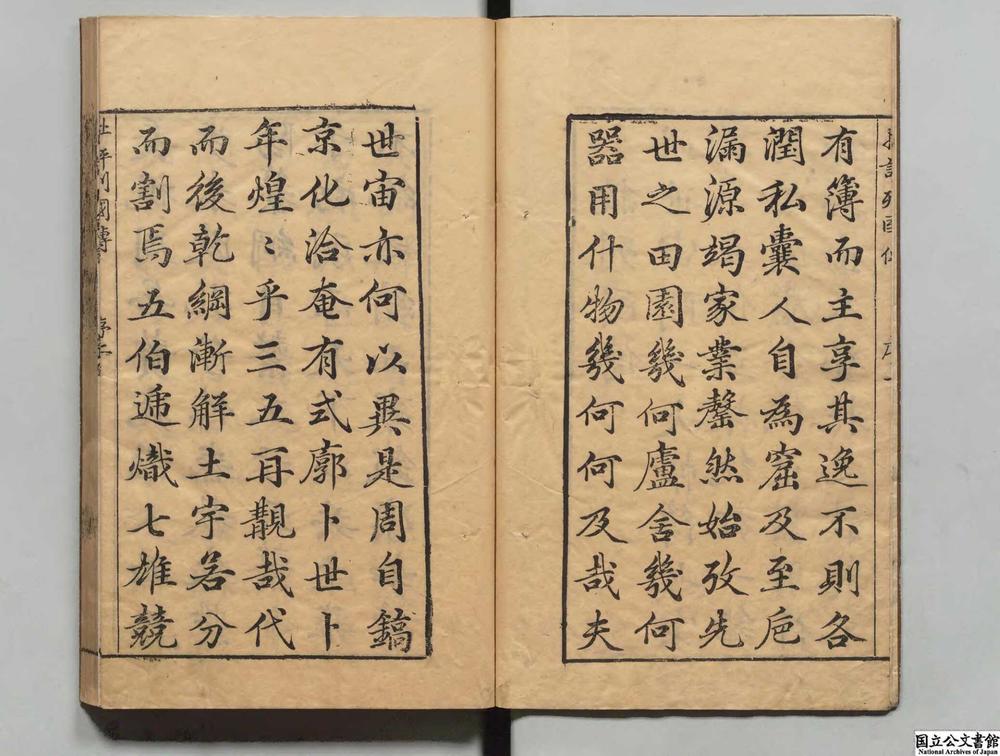 有簿而主享其逸不則各
潤私囊人自為窟及至巵
漏源竭家業罄然始攷先
世之田園幾何廬舍幾何
器用什物幾何何及哉夫
世宙亦何以異是周自鎬
京化洽奄有式廓卜世卜
年煌〻乎三五再覯哉代
而後乾綱漸解土宇𠰥分
而割焉五伯遞熾七雄競
列國傳 序
国立公文書館
National Archives of Japan